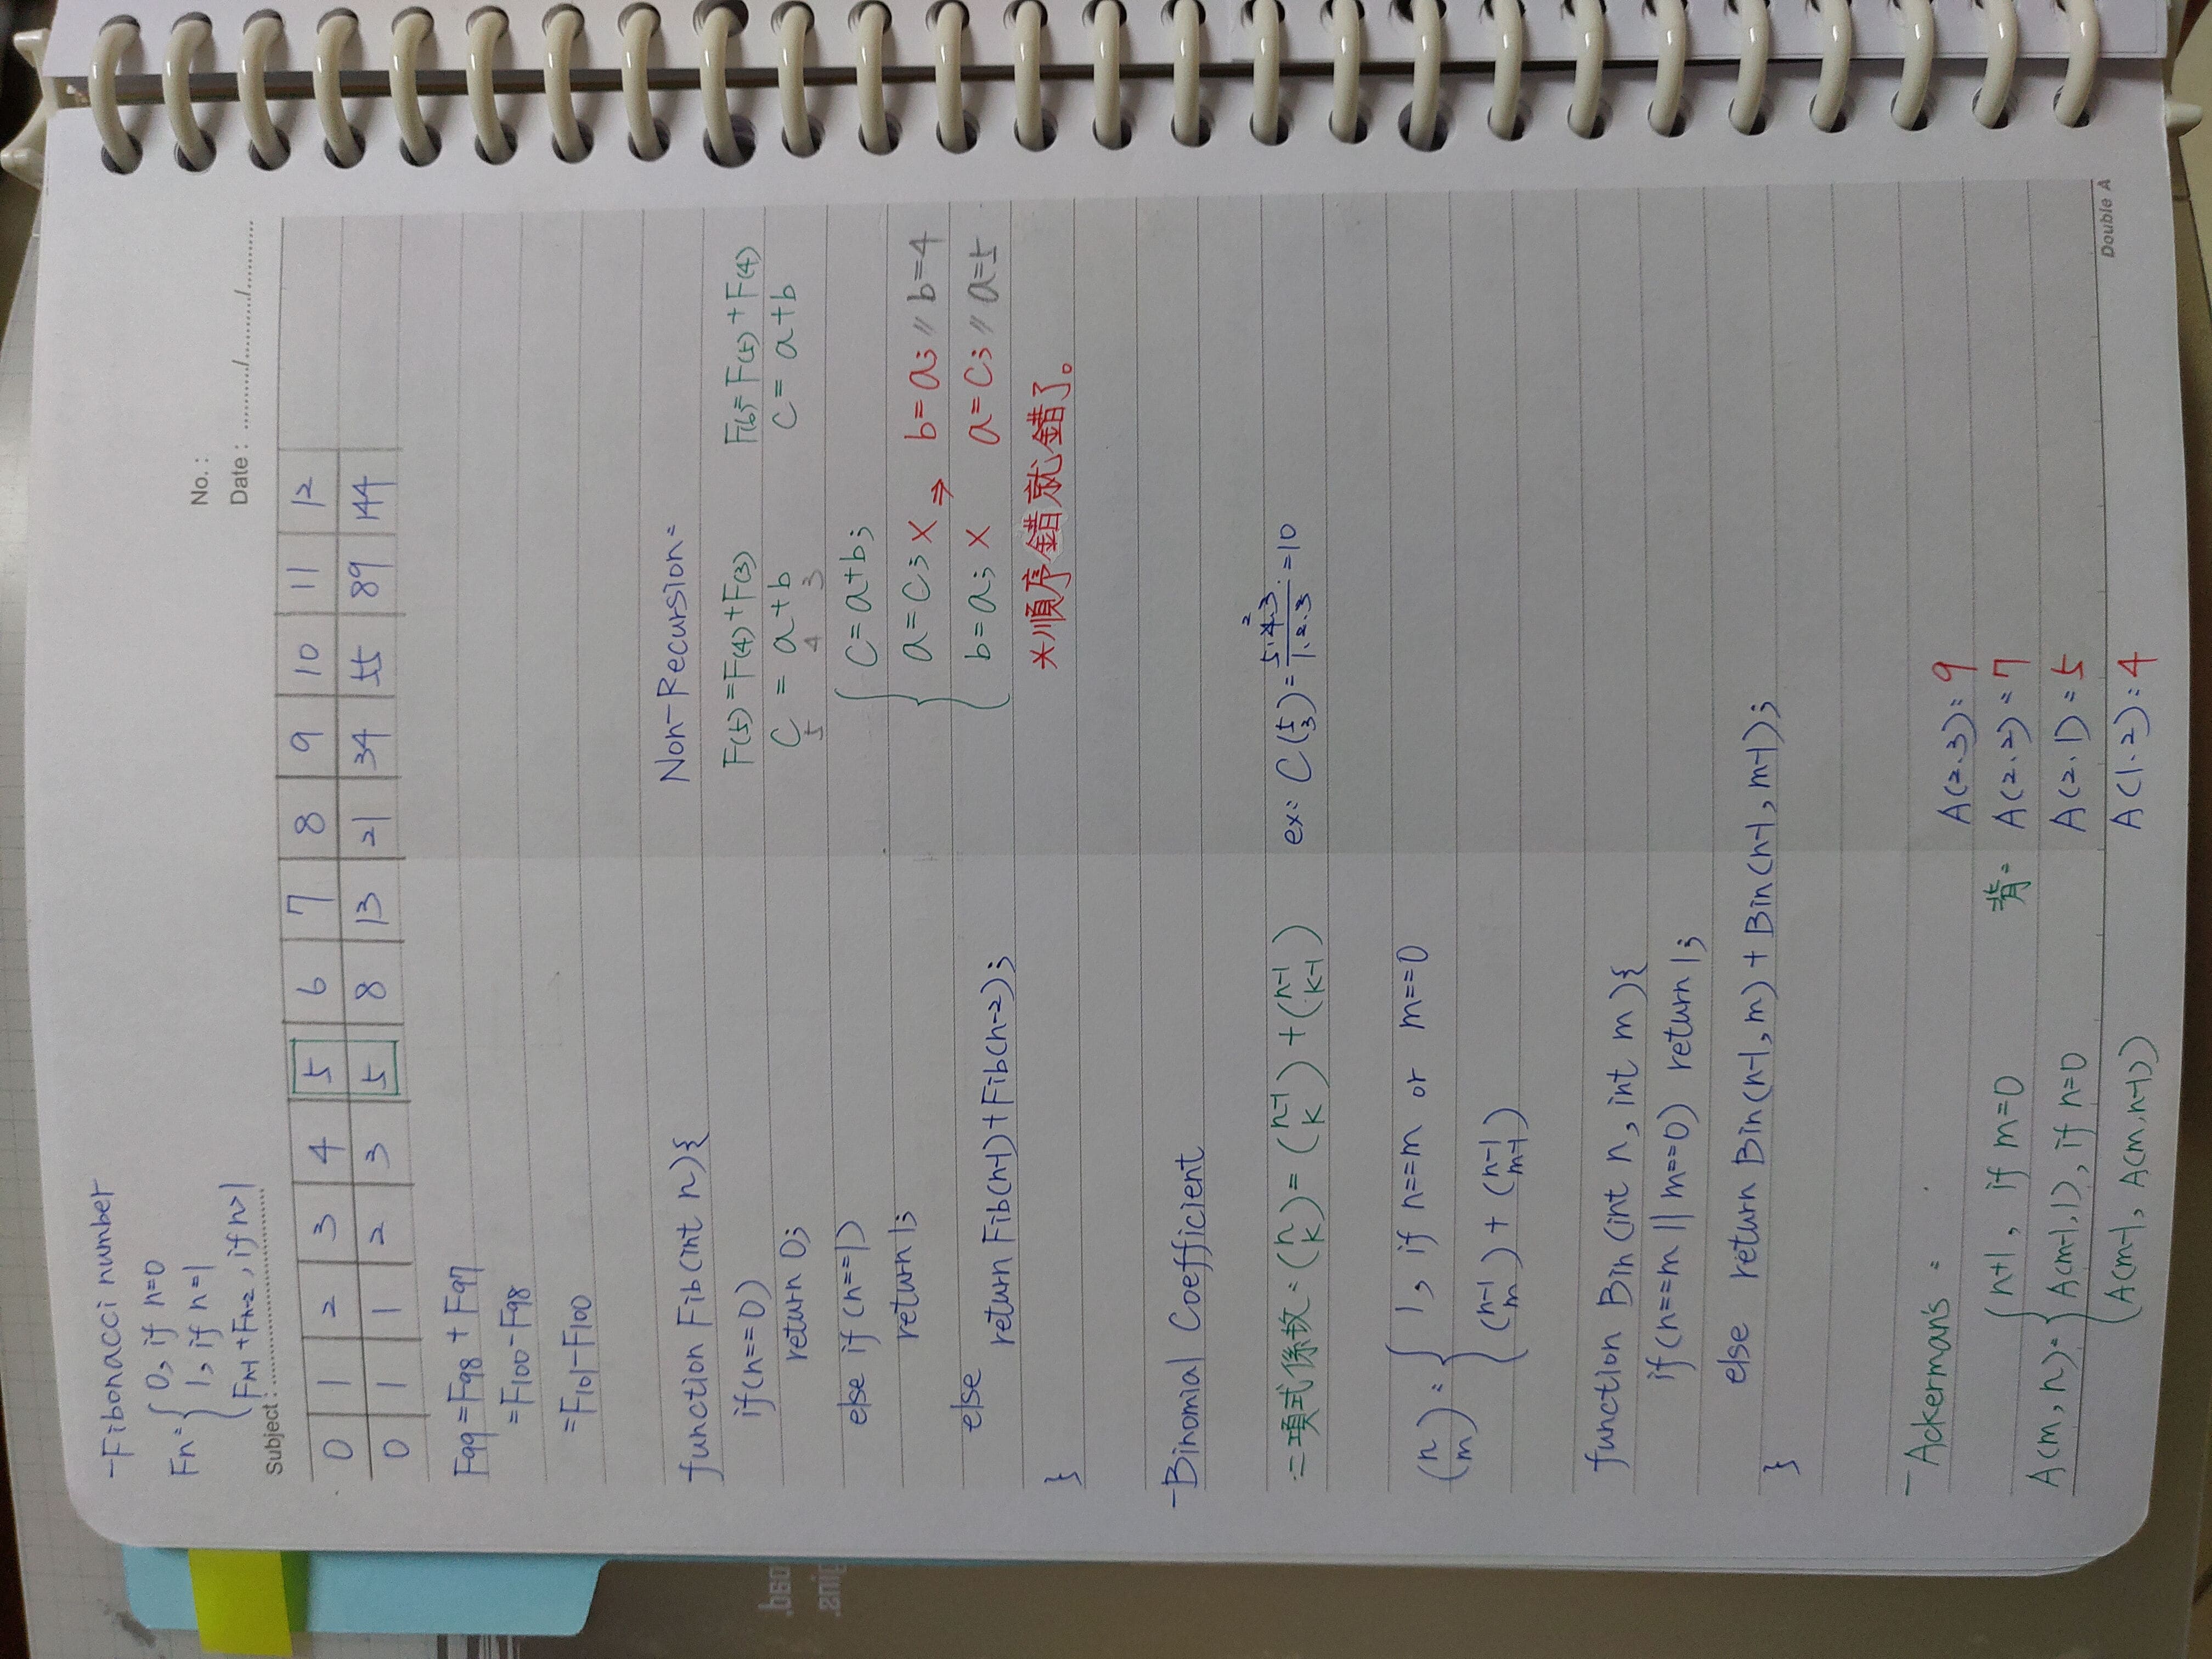 -Fibonacci number
Fn = { 0, if n=0
1, if n=1
Fn-1 + Fn-2, if n>1
No. :
Date : ........../........../..........
Subject : ..............................
0 1 2 3 4 5 6 7 8 9 10 11 12
0 1 1 2 3 5 8 13 21 34 55 89 144
F99 = F98 + F97
= F100 - F98
= F101 - F100
function Fib(int n){
if(n==0)
return 0;
else if (n==1)
return 1;
else
return Fib(n-1)+Fib(n-2);
}
Non-Recursion:
F(5) = F(4)+F(3) F(6)= F(5)+F(4)
C = a+b C = a+b
5 4 3
C=a+b;
a=C; X ⇒ b=a; // b=4
b=a; X a=C; // a=5
*順序錯就錯了。
-Binomial Coefficient
二項式係故: (n k) = (n-1 k) + (n-1 k-1) ex: C(5 3) = 5.4.3 / 1.2.3 = 10
2
(n m) = { 1, if n==m or m==0
(n-1 m) + (n-1 m-1)
function Bin (int n, int m){
if(n==m || m==0) return 1;
else return Bin(n-1, m) + Bin(n-1, m-1);
}
-Ackerman's :
A(m, n) = { n+1, if m=0
A(m-1, 1), if n=0
A(m-1, A(m,n-1))
背: A(2.3) = 9
A(2.2) = 7
A(2.1) = 5
A(1.2) = 4
Double A